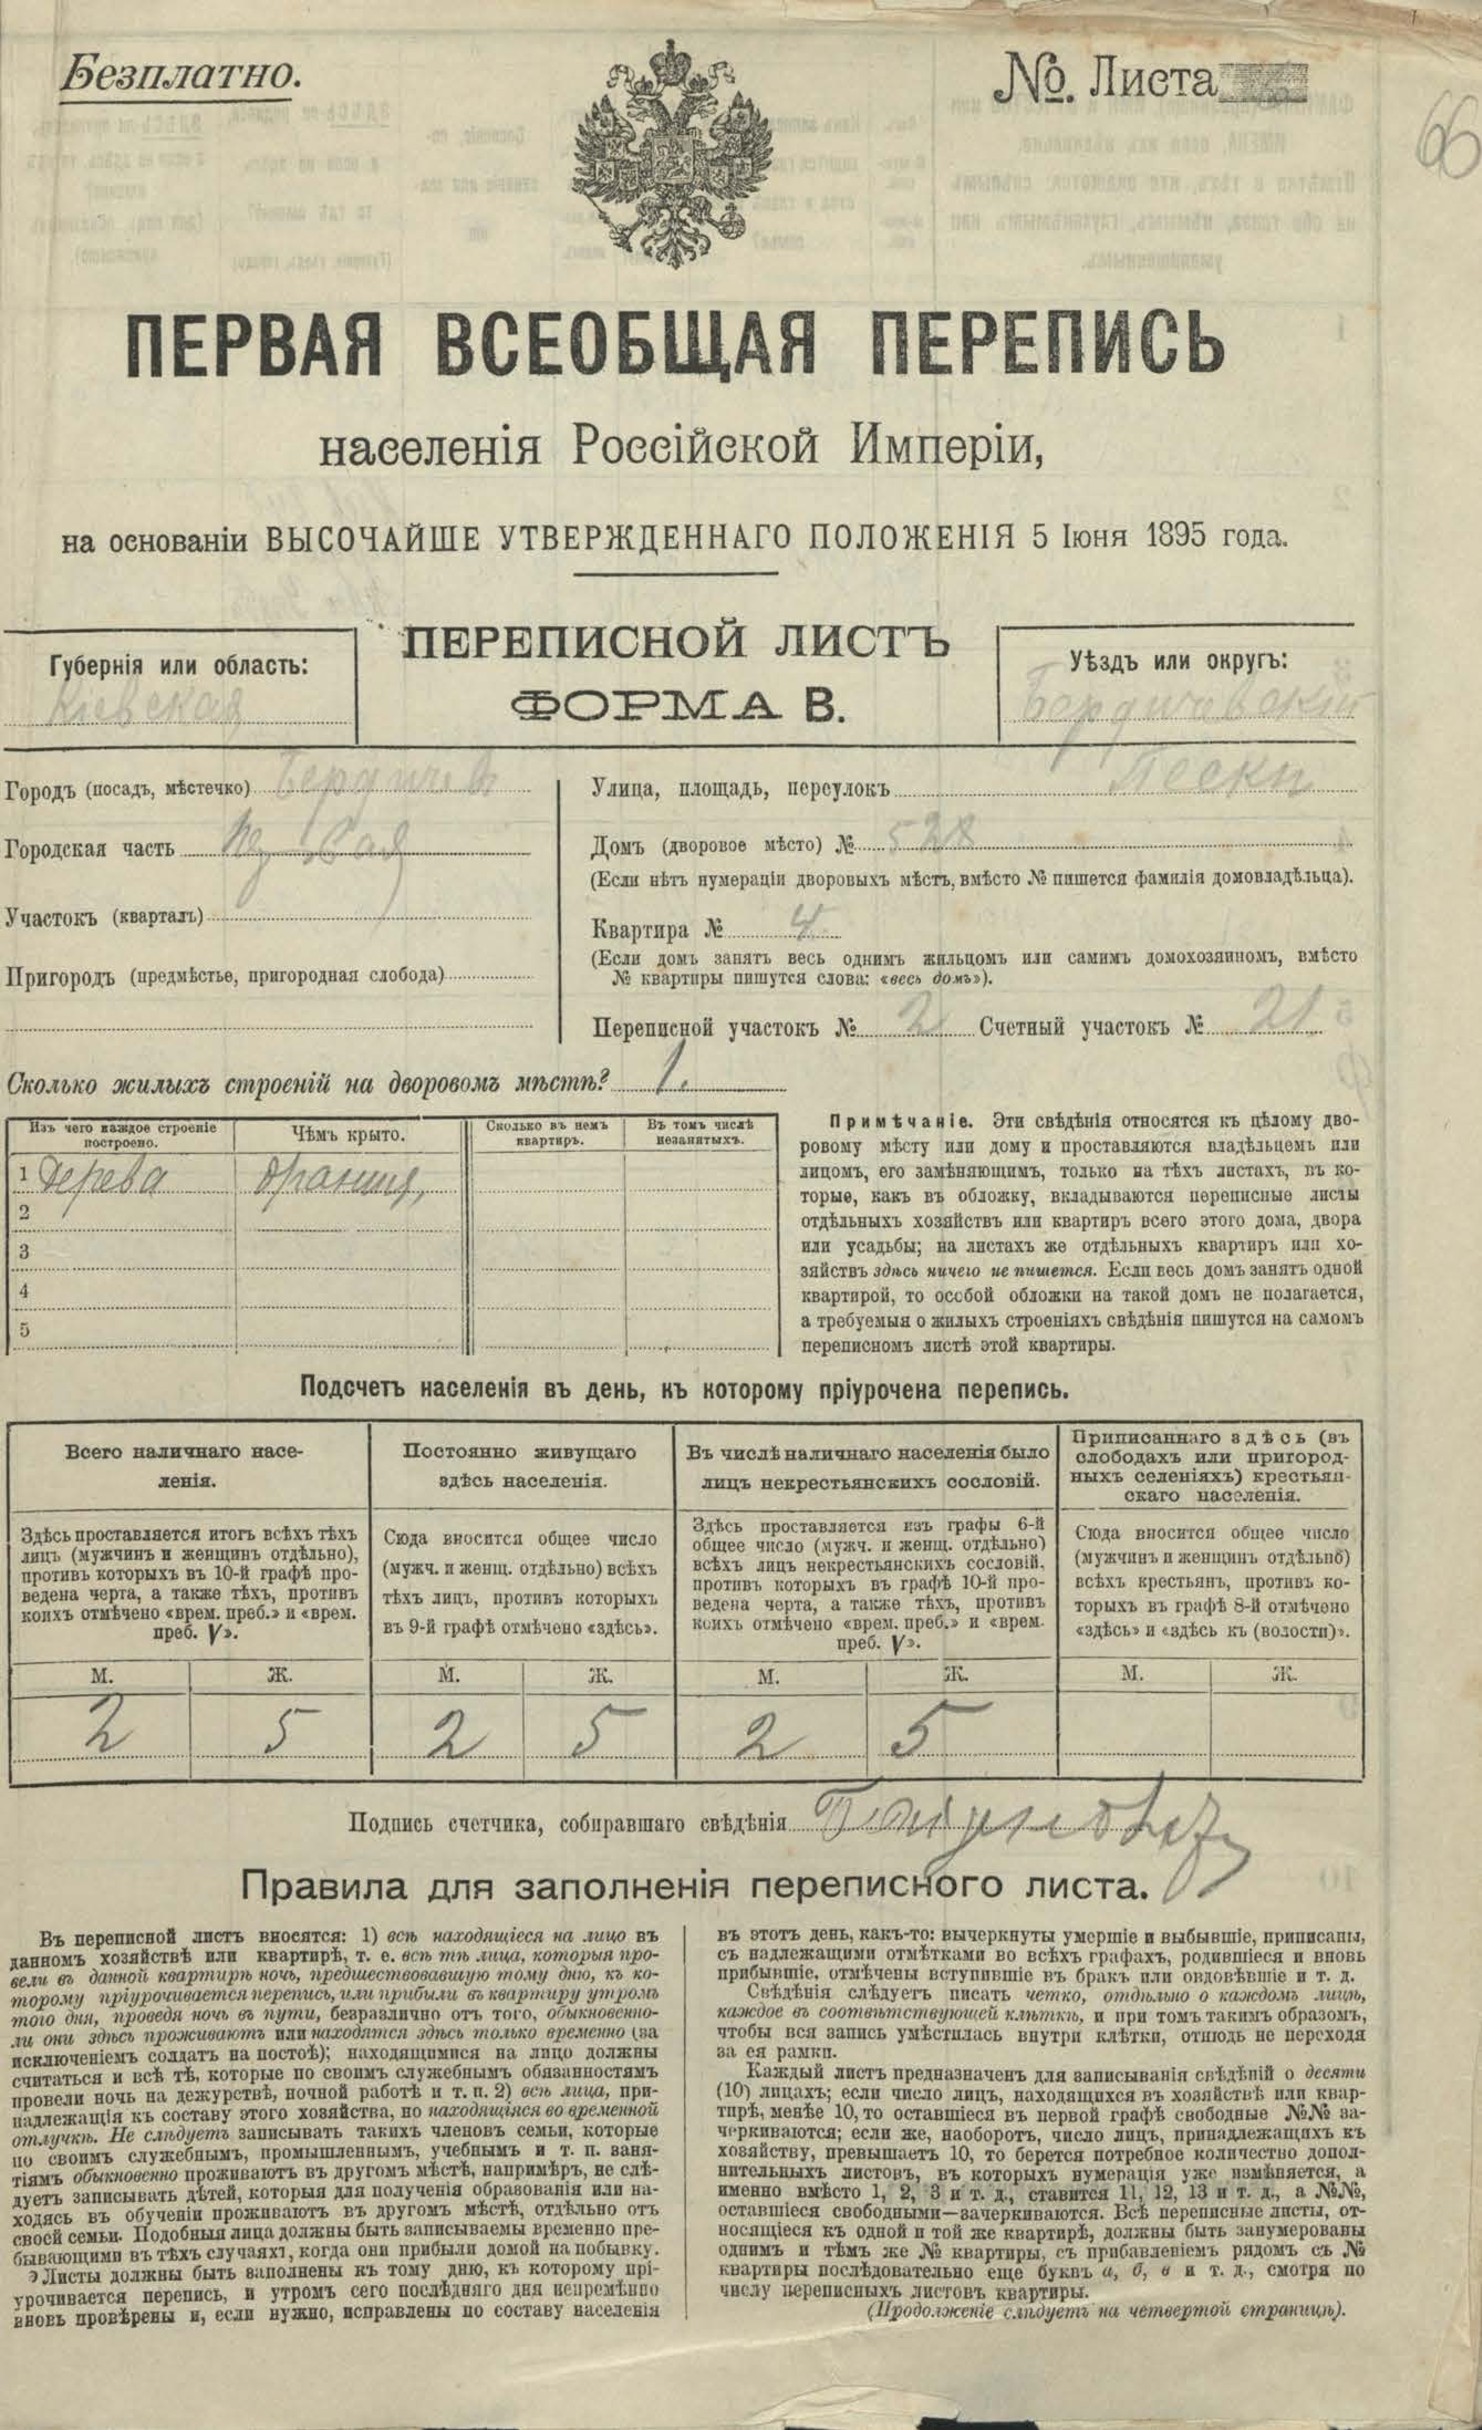 Безплатно.
№. Листа
66
ПЕРВАЯ ВСЕОБЩАЯ ПЕРЕПИСЬ
населенія Россійской Имперіи,
на основаніи ВЫСОЧАЙШЕ УТВЕРЖДЕННАГО ПОЛОЖЕНІЯ 5 Іюня 1895 года.
ПЕРЕПИСНОЙ ЛИСТЪ
ФОРМА В.
Губернія или область:
Кіевская
Уѣздъ или округъ:
Бердичевскій
Городъ (посадъ, мѣстечко) Бердичевъ
Городская часть
Участокъ (кварталъ)
Пригородъ (предмѣстье, пригородная слобода)
Улица, площадь, переулокъ Пески
Домъ (дворовое мѣсто) № 528
(Если нѣтъ нумераціи дворовыхъ мѣстъ, вмѣсто № пишется фамилія домовладѣльца).
Квартира № 4
(Если домъ занятъ весь однимъ жильцомъ или самимъ домохозяиномъ, вмѣсто
№ квартиры пишутся слова: «весь домъ»).
Переписной участокъ № 2 Счетный участокъ № 21
Сколько жилыхъ строеній на дворовомъ мѣстѣ? 1.
Изъ чего каждое строеніе
построено.
Чѣмъ крыто.
Сколько въ немъ
квартиръ.
Въ томъ числѣ
незанятыхъ.
1 Дерева
2
3
4
5
Примѣчаніе. Эти свѣдѣнія относятся къ цѣлому дво-
ровому мѣсту или дому и проставляются владѣльцемъ или
лицомъ, его замѣняющимъ, только на тѣхъ листахъ, въ ко-
торые, какъ въ обложку, вкладываются переписные листы
отдѣльныхъ хозяйствъ или квартиръ всего этого дома, двора
или усадьбы; на листахъ же отдѣльныхъ квартиръ или хо-
зяйствъ здѣсь ничего не пишется. Если весь домъ занятъ одной
квартирой, то особой обложки на такой домъ не полагается,
а требуемыя о жилыхъ строеніяхъ свѣдѣнія пишутся на самомъ
переписномъ листѣ этой квартиры.
Подсчетъ населенія въ день, къ которому пріурочена перепись.
Всего наличнаго насе-
ленія.
Здѣсь проставляется итогъ всѣхъ тѣхъ
лицъ (мужчинъ и женщинъ отдѣльно),
противъ которыхъ въ 10-й графѣ про-
ведена черта, а также тѣхъ, противъ
коихъ отмѣчено «врем. преб.» и «врем.
преб. V».
М. Ж.
2 5
Постоянно живущаго
здѣсь населенія.
Сюда вносится общее число
(мужч. и женщ. отдѣльно) всѣхъ
тѣхъ лицъ, противъ которыхъ
въ 9-й графѣ отмѣчено «здѣсь».
М. Ж.
2 5
Въ числѣ наличнаго населенія было
лицъ некрестьянскихъ сословій.
Здѣсь проставляется изъ графы 6-й
общее число (мужч. и женщ. отдѣльно)
всѣхъ лицъ некрестьянскихъ сословій,
противъ которыхъ въ графѣ 10-й про-
ведена черта, а также тѣхъ, противъ
коихъ отмѣчено «врем. преб.» и «врем.
преб. V».
М. Ж.
2 5
Приписаннаго здѣсь (въ
слободахъ или пригород-
ныхъ селеніяхъ) крестьян-
скаго населенія.
Сюда вносится общее число
(мужчинъ и женщинъ отдѣльно)
всѣхъ крестьянъ, противъ ко-
торыхъ въ графѣ 8-й отмѣчено
«здѣсь» и «здѣсь къ (волости)».
М. Ж.
Подпись счетчика, собиравшаго свѣдѣнія
Правила для заполненія переписного листа.
Въ переписной листъ вносятся: 1) всѣ находящіеся на лицо въ
данномъ хозяйствѣ или квартирѣ, т. е. всѣ тѣ лица, которыя про-
вели въ данной квартирѣ ночь, предшествовавшую тому дню, къ ко-
торому пріурочивается перепись, или прибыли въ квартиру утромъ
того дня, проведя ночь въ пути, безразлично отъ того, обыкновенно-
ли они здѣсь проживаютъ или находятся здѣсь только временно (за
исключеніемъ солдатъ на постоѣ); находящимися на лицо должны
считаться и всѣ тѣ, которые по своимъ служебнымъ обязанностямъ
провели ночь на дежурствѣ, ночной работѣ и т. п. 2) всѣ лица, при-
надлежащія къ составу этого хозяйства, но находящіяся во временной
отлучкѣ. Не слѣдуетъ записывать такихъ членовъ семьи, которые
по своимъ служебнымъ, промышленнымъ, учебнымъ и т. п. заня-
тіямъ обыкновенно проживаютъ въ другомъ мѣстѣ, напримѣръ, не слѣ-
дуетъ записывать дѣтей, которыя для полученія образованія или на-
ходясь въ обученіи проживаютъ въ другомъ мѣстѣ, отдѣльно отъ
своей семьи. Подобныя лица должны быть записываемы временно пре-
бывающими въ тѣхъ случаяхъ, когда они прибыли домой на побывку.
Листы должны быть заполнены къ тому дню, къ которому прі-
урочивается перепись, и утромъ сего послѣдняго дня непремѣнно
вновь провѣрены и, если нужно, исправлены по составу населенія
въ этотъ день, какъ-то: вычеркнуты умершіе и выбывшіе, приписаны,
съ надлежащими отмѣтками во всѣхъ графахъ, родившіеся и вновь
прибывшіе, отмѣчены вступившіе въ бракъ или овдовѣвшіе и т. д.
Свѣдѣнія слѣдуетъ писать четко, отдѣльно о каждомъ лицѣ,
каждое въ соотвѣтствующей клѣткѣ, и при томъ такимъ образомъ,
чтобы вся запись умѣстилась внутри клѣтки, отнюдь не переходя
за ея рамки.
Каждый листъ предназначенъ для записыванія свѣдѣній о десяти
(10) лицахъ; если число лицъ, находящихся въ хозяйствѣ или квар-
тирѣ, менѣе 10, то оставшіеся въ первой графѣ свободные №№ за-
черкиваются; если же, наоборотъ, число лицъ, принадлежащихъ къ
хозяйству, превышаетъ 10, то берется потребное количество допол-
нительныхъ листовъ, въ которыхъ нумерація уже измѣняется, а
именно вмѣсто 1, 2, 3 и т. д., ставится 11, 12, 13 и т. д., а №№,
оставшіеся свободными—зачеркиваются. Всѣ переписные листы, от-
носящіеся къ одной и той же квартирѣ, должны быть занумерованы
однимъ и тѣмъ же № квартиры, съ прибавленіемъ рядомъ съ №
квартиры послѣдовательно еще буквъ а, б, в и т. д., смотря по
числу переписныхъ листовъ квартиры.
(Продолженіе слѣдуетъ на четвертой страницѣ).